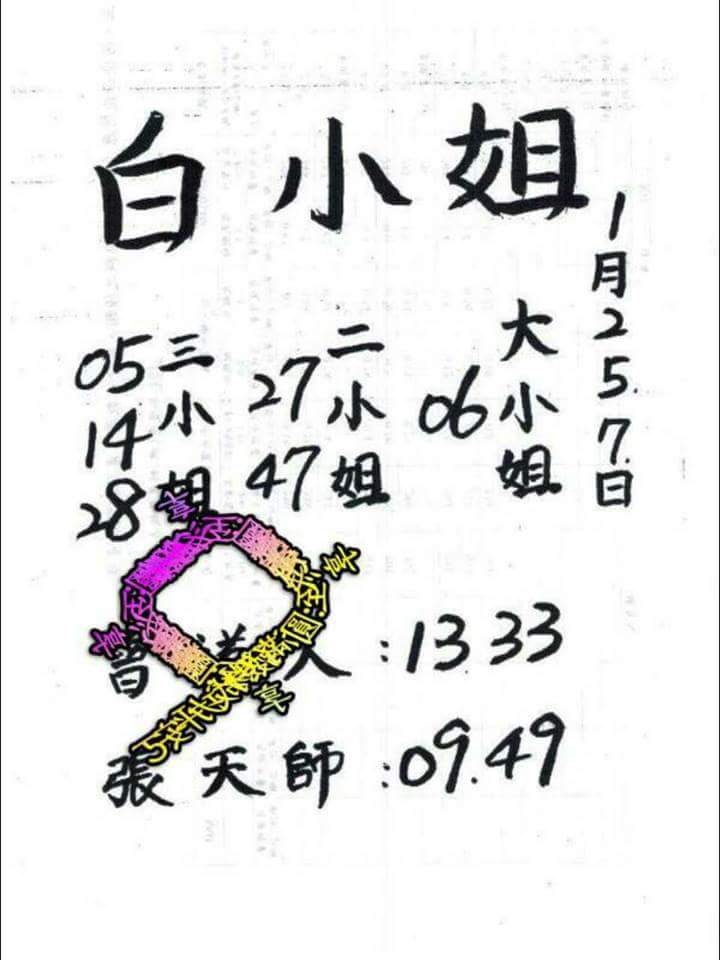 白小姐
1月25.7.日
大小姐
06
二小姐
27
47
三小姐
05
14
28
曾道人:13 33
張天師:09.49